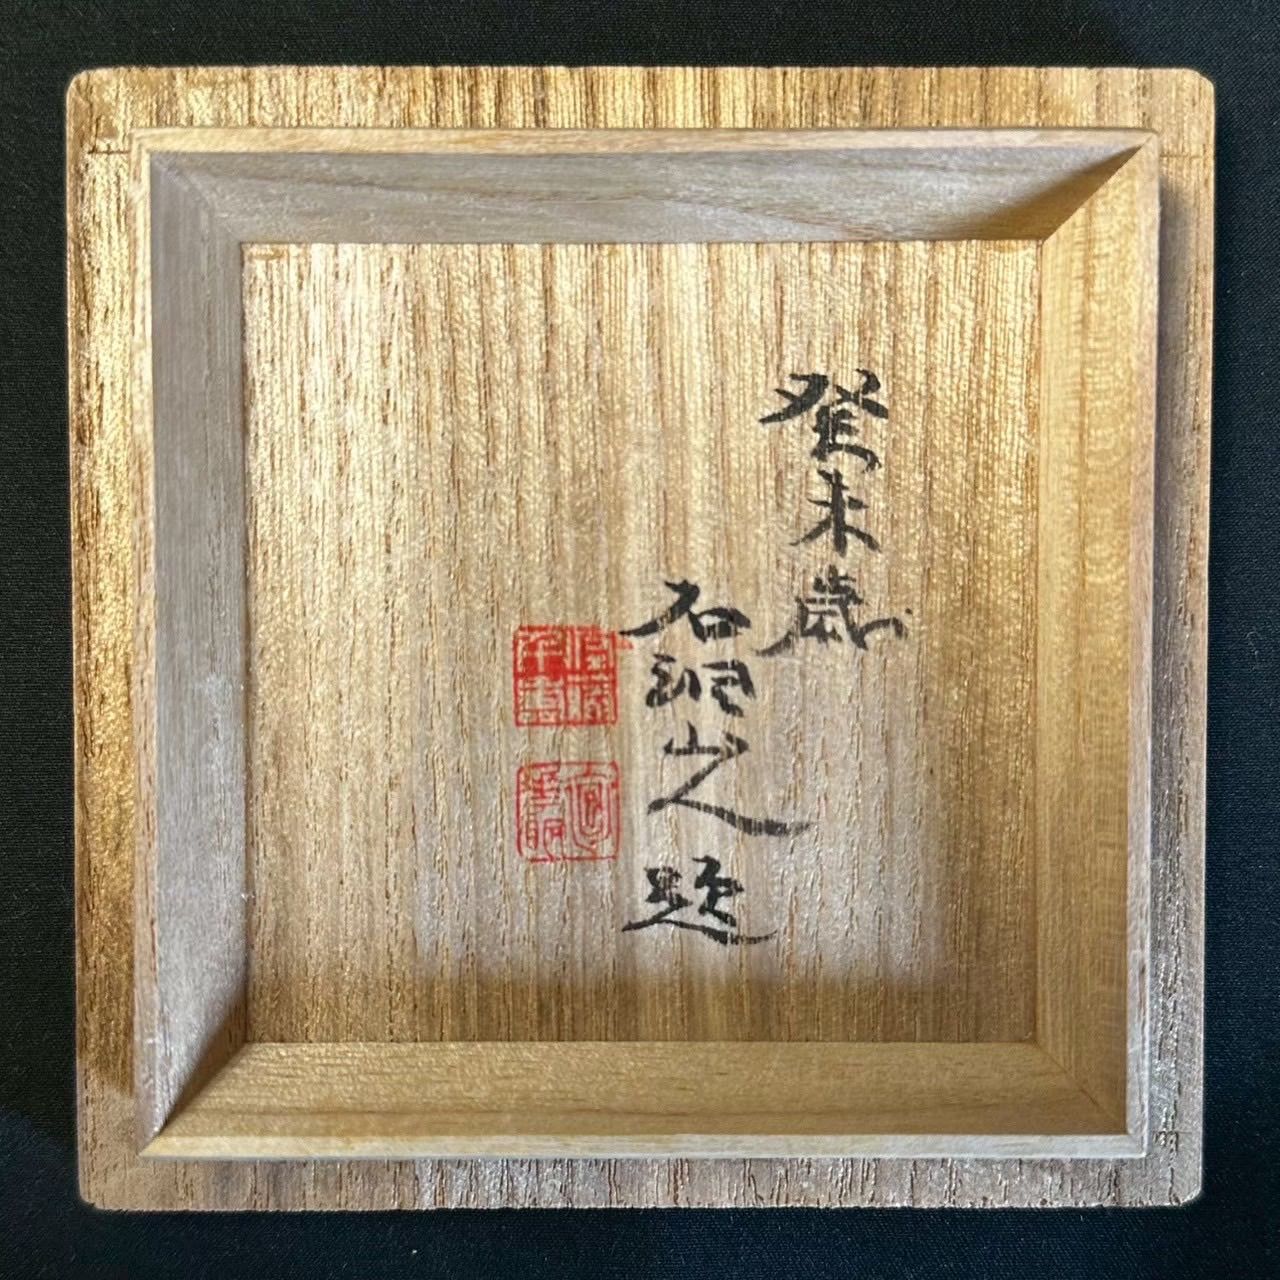 癸未歳
石洞山人題